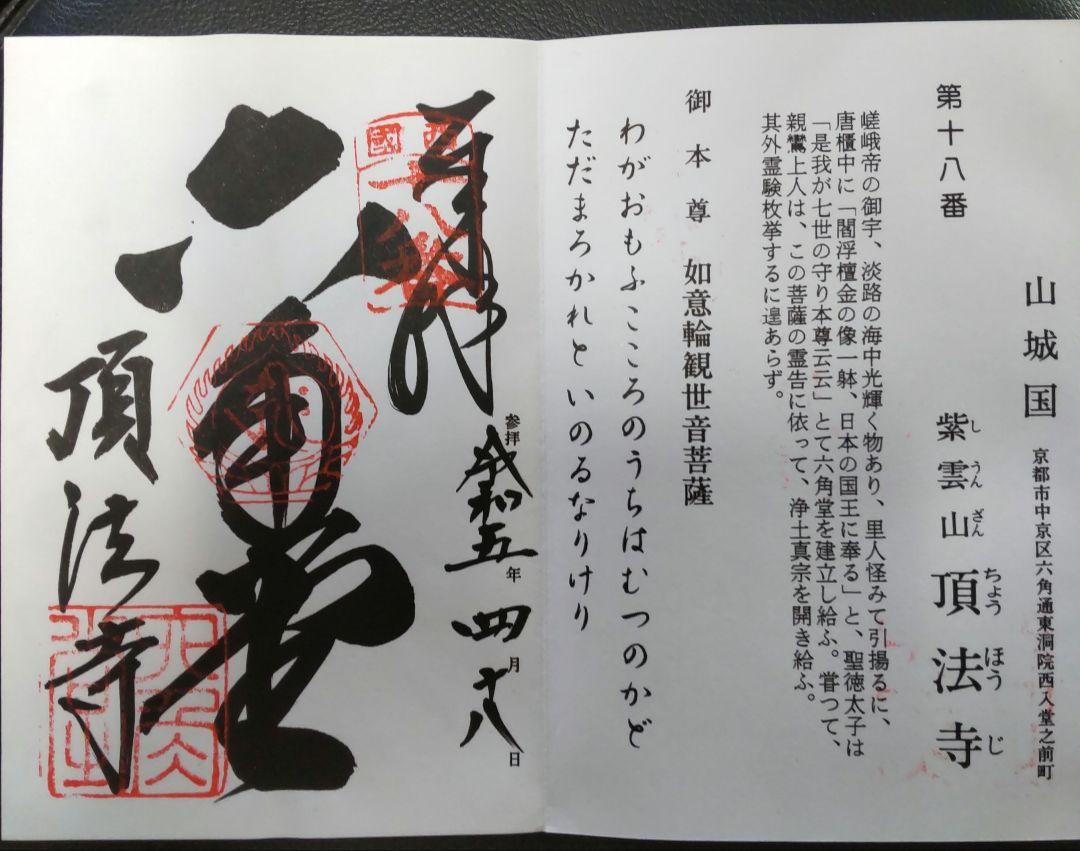 第十八番
山城国
京都市中京区六角通東洞院西入堂之前町
紫雲山頂法寺
しうんざんちょうほうじ
嵯峨帝の御宇、淡路の海中光輝く物あり、里人怪みて引揚るに、
唐櫃中に「閻浮檀金の像一躰、日本の国王に奉る」と、聖徳太子は
「是我が七世の守り本尊云云」とて六角堂を建立し給ふ。嘗つて、
親鸞上人は、この菩薩の霊告に依って、浄土真宗を開き給ふ。
其外霊験枚挙するに遑あらず。
御本尊 如意輪観世音菩薩
わがおもふこころのうちはむつのかど
ただまろかれといのるなりけり
奉拝
西國十八番
参拝 令和五年 四月十八日
六角堂
頂法寺